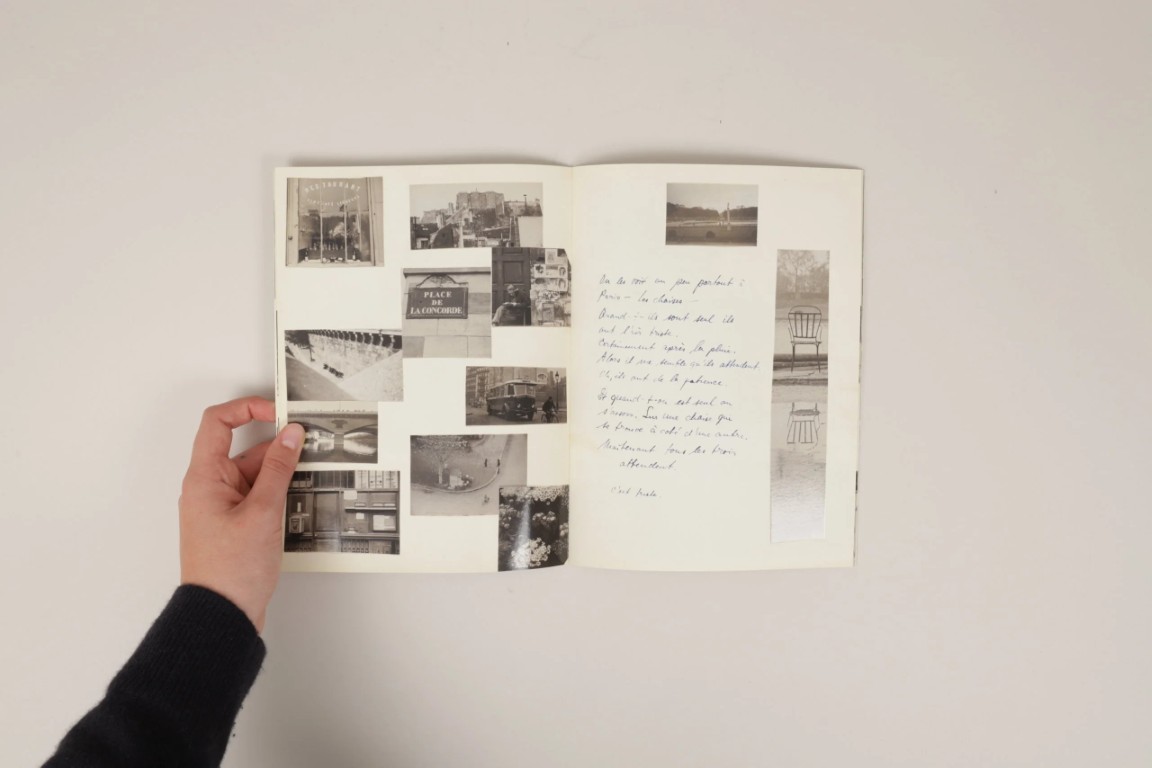 RESTAURANT
PLACE
DE
LA CONCORDE
On les voit un peu partout à
Paris – les chaises –
Quand-i-ls sont seul ils
ont l'air triste.
Certainement après la pluie.
Alors il me semble qu'ils attendent.
Oh, ils ont de la patience.
Et quand-t-on est seul on
s'assoit. Sur une chaise que
se trouve à coté d'une autre.
Maintenant tous les trois
attendent
c'est triste.